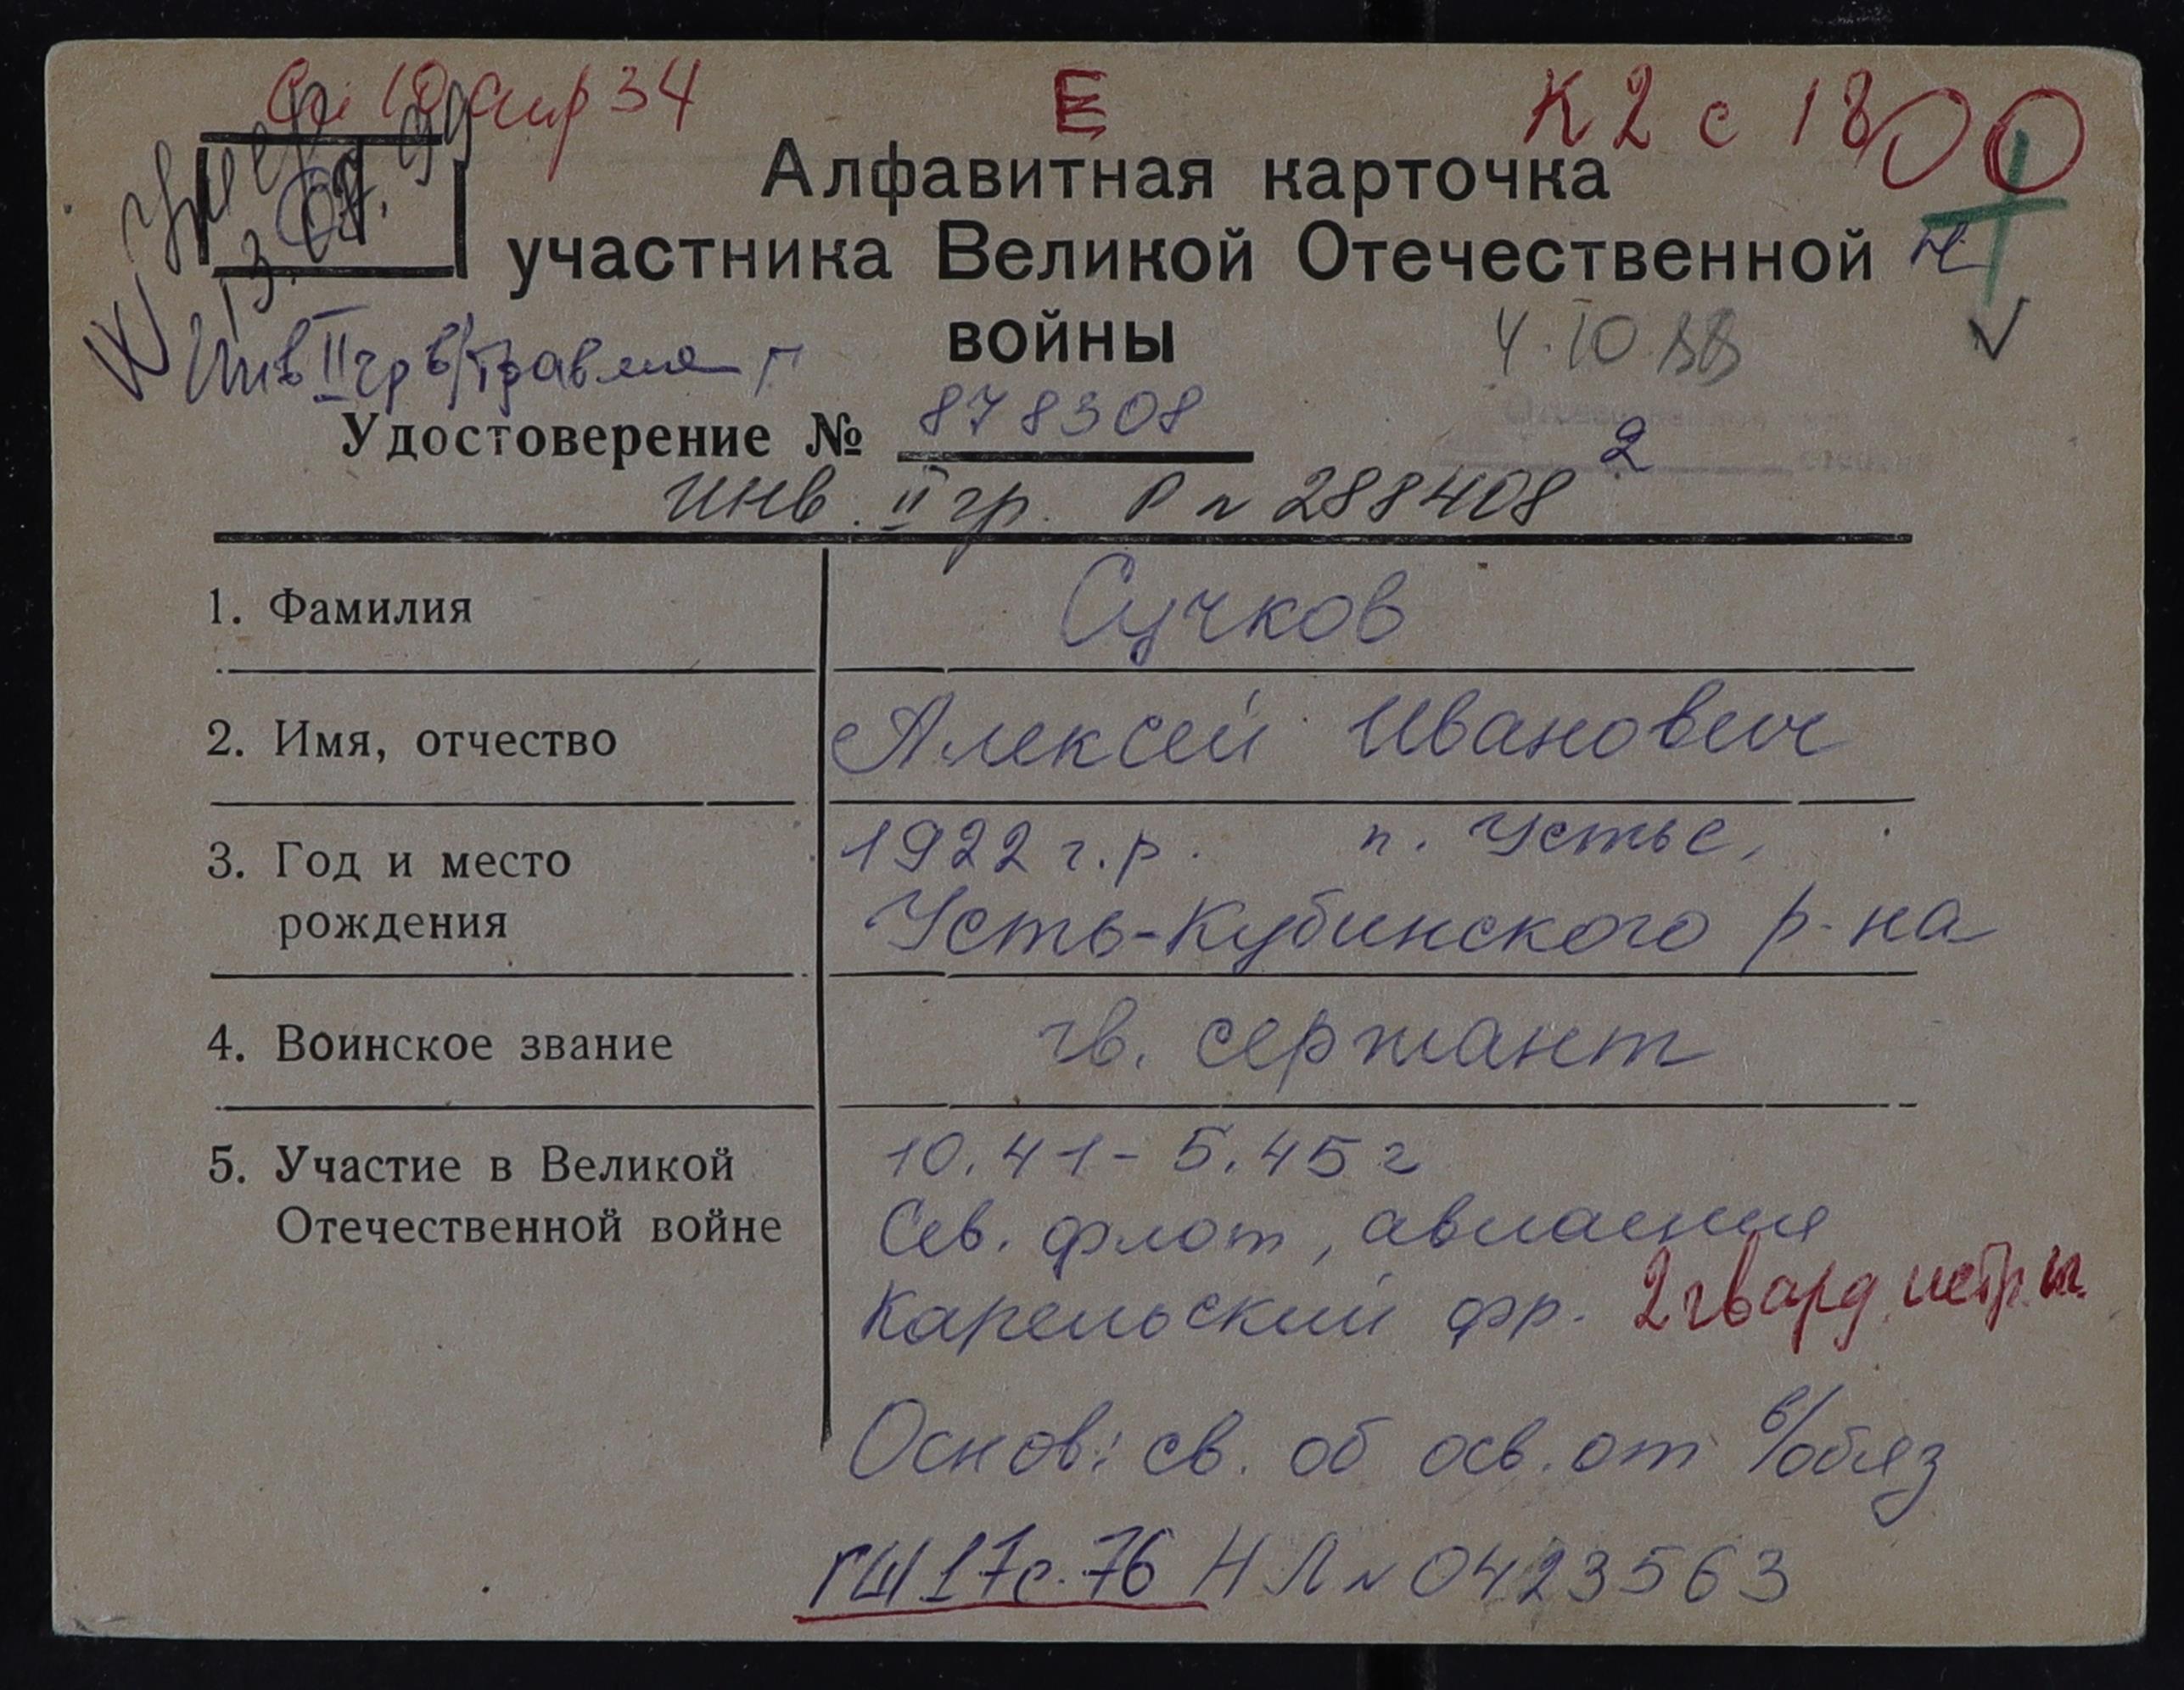 34
Е
К2 с 18
Умер
13.
Алфавитная карточка
участника Великой Отечественной
войны
Инв II гр в/травма
Удостоверение № 878308
2
инв. II гр. Р № 288408
1. Фамилия
Сучков
2. Имя, отчество
Алексей Иванович
3. Год и место
рождения
1922 г.р. п. Устье,
Усть-Кубинского р-на
4. Воинское звание
гв. сержант
5. Участие в Великой
Отечественной войне
10.41-5.45 г
Сев. флот, авиация
Карельский фр. 2 гвард. истр. п.
Основ: св. об осв. от в/обяз
ГШ 17 с. 76 НЛ № 0423563